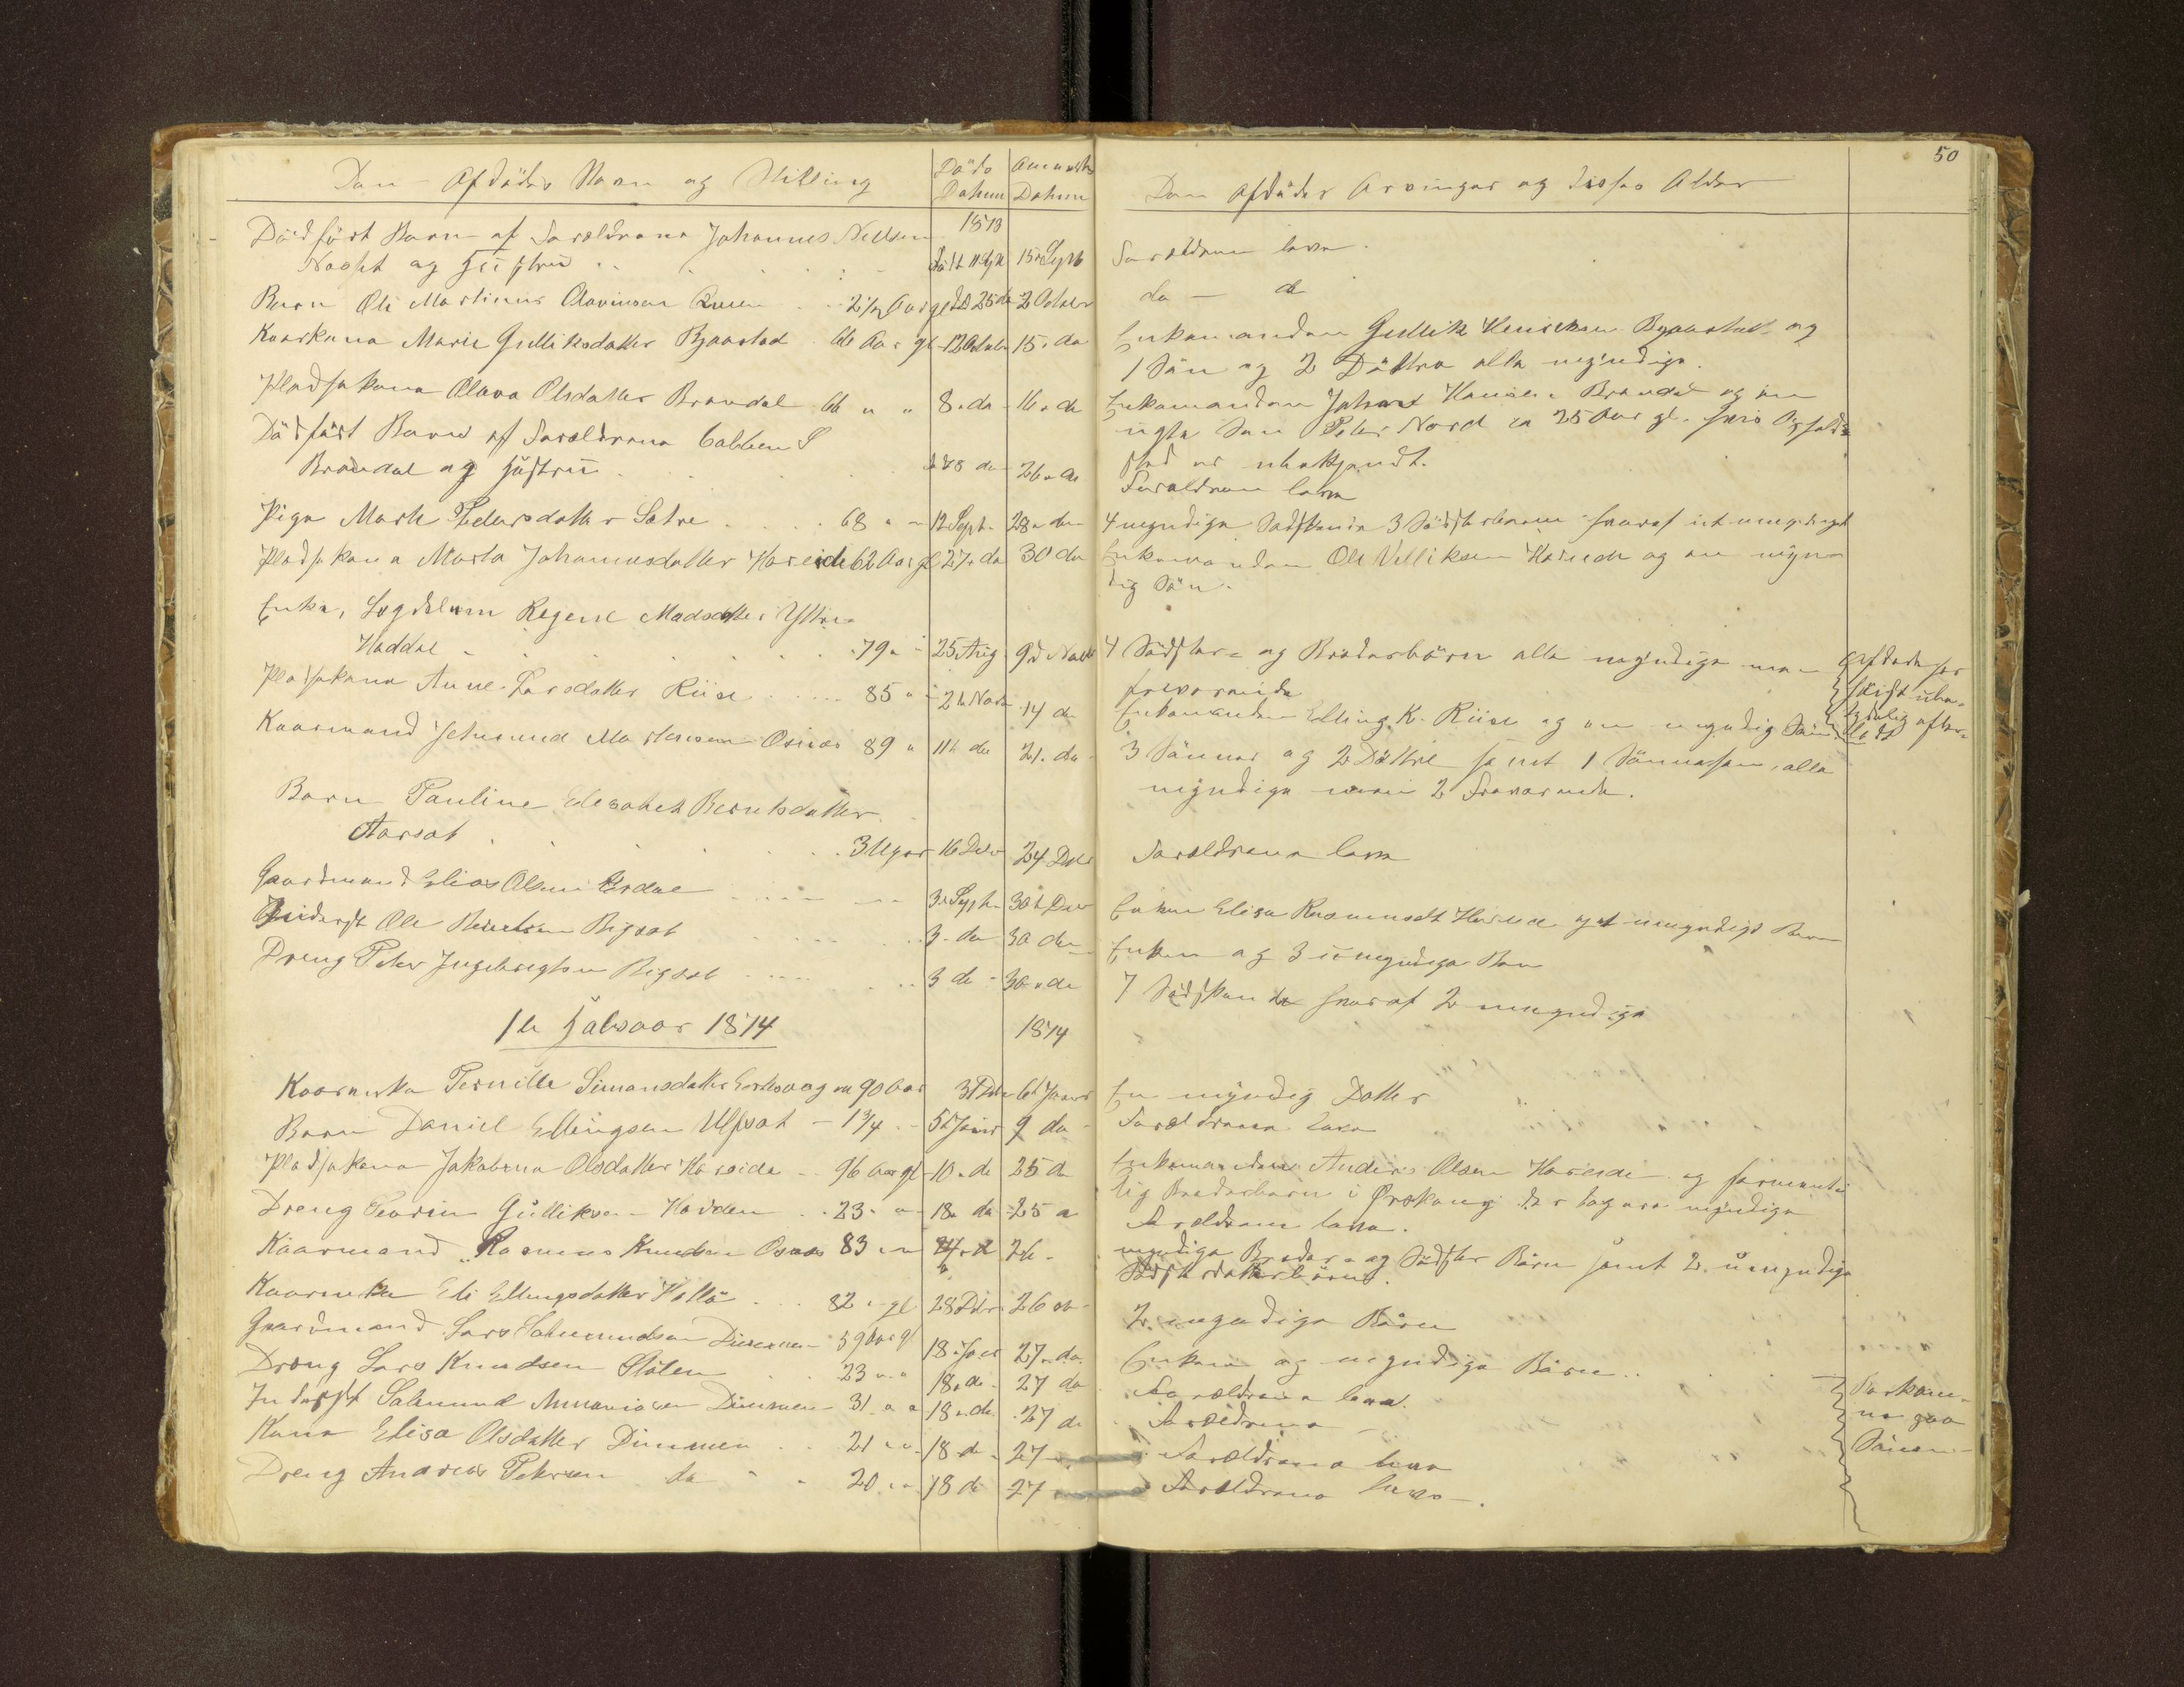 50
Den Afdødes Navn og Stilling
Døds Datum
Anmeldte Datum
Den afdødes Arvinger og disses Alder
1873
Dødfødt Barn af Forældrene Johannes Nilsen
og Hustru
15 Septb
Forældrene leve.
Barn Ole Martinus 2 1/2 Aar gl 25 do 2 October
do — do
Kaarkona Marie Gulliksdatter Bjaastad 66 Aar gl 12 Octob 15. do
Enkemanden Gullik Bjaastad og
1 Søn og 2 Døttre alle myndige.
Pladsekone Olava Olsdatter Brandal 66 " " 8. do 16. do
Enkemanden Johan Hansen Brandal og en
ugte Søn Peter Nord ca 25 Aar gl. hvis Opholds
sted er ubekjendt.
Dødfødt Barn af Forældrene
Brandal og Hustru do 26. do
Forældrene leve
Pige Marte Pedersdatter Sætre 68 " " 12 Septr. 28. do
4 myndige Sødskende 3 Sødsterbørn hvoraf et umyndigt
Pladsekone Marta Johannesdatter Hareide 62 Aar gl 27. do 30 do
Enkemanden Ole Villiksen Hareide og en myn-
dig Søn.
Enke, Lægdslem Regine Madsdatter Yttre-
Haddal 79 " 25 Aug 9d Novb
4 Sødster- og Broderbørn alle myndige men
fraværende
Afdøde har
høist ube-
tydelig efter-
ladt
Pladsekone Anne Larsdatter Riise 85 " 2d Novb 14 do
Enkemanden Elling K. Riise og en myndig Søn
Kaarmand Salmund Martensen Osnæs 89 " 11d do 21. do
3 Sønner og 2 Døttre samt 1 Sønnesøn, alle
myndige men 2 Fraværende.
Barn Pauline Elisabet Berntsdatter
Aarsæt 3 Uger 16 Decbr 24 Decb
Forældrene leve
Gaardmand Elias Olsen 3. Septb 30t Decbr
Enken Elisa Rasmusdt Hareide og et umyndigt Barn
Inderst Ole Berntsen Rigsæt 3. do 30 do
Enken og 3 umyndige Børn
Dreng Peter Ingebregtsen Rigsæt 3 do 30. do
7 Sødskende hvoraf 2 umyndige
1te Halvaar 1874
1874
Kaarenke Pernille Simonsdatter 90 Aar 31 Decb 6t Januar
En myndig Datter
Barn Daniel Ellingsen Ulfsæt 1 3/4 5t Januar 9 do
Forældrene leve
Pladsekone Jakobina Olsdatter Hareide 96 Aar gl 10. do 25 do
Enkemanden Anders Olsen Hareide og formentl
lig Broderbørn i Ørskoug der begge ere myndige
Dreng Severin Gulliksen Hadden 23 " " 18. do 25 "
Forældrene leve.
Kaarmand Rasmus Knudsen Osnæs 83 " " 26 "
myndige Broder- og Sødster Børn samt 2 umyndige
Sødsterdatterbørn.
Kaarenke Eli Ellingsdatter 82 " gl 28 Decbr. 26 do
2 myndige Børn
Gaardmand Lars Salmundsen Dimmen 59 Aar gl 18 Janr 27. do
Enken og myndige Børn.
Dreng Lars Knudsen Stølen 23 " " 18. do 27 do
Forældrene leve.
Inderst Salmund Dimmen 31 " " 18. do. 27 do
Forældrene
Kone Elisa Olsdatter Dimmen 21 " " 18 d. 27
Forældrene leve
Dreng Andreas Petersen do 20 " " 18 do 27
Forældrene leve.
Forkom-
ne paa
Søen